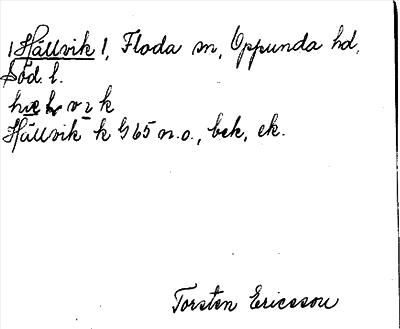 /Hällvik/, Floda sn, Oppunda hd,
Söd. l.
Hällvik k G 65 n.o., bek, ek.
Torsten Ericsson